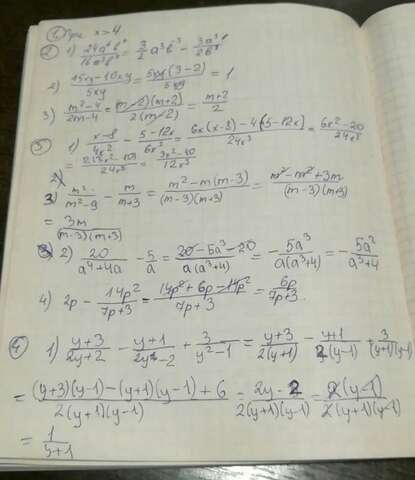 ① При x > 4.
② 1) 24a⁶b⁴/16a³b⁷ = 3/2 a³b⁻³ = 3a³/2b³
2) (15xy-10xy)/5xy = 5xy(3-2)/5xy = 1
3) (m²-4)/(2m-4) = (m-2)(m+2)/2(m-2) = (m+2)/2
③ 1) (x-8)/4x² - (5-12x)/6x³ = (6x(x-3)-4(5-12x))/24x³ = (6x²-20)/24x³
= 2(3x²-10)/24x³ = (3x²-10)/12x³
3) m²/(m²-9) - m/(m+3) = (m²-m(m-3))/(m-3)(m+3) = (m²-m²+3m)/(m-3)(m+3)
= 3m/(m-3)(m+3)
2) 20/(a⁴+4a) - 5/a = (20-5a³-20)/a(a³+4) = -5a³/a(a³+4) = -5a²/(a³+4)
4) 2p - 14p²/(7p+3) = (14p²+6p-14p²)/(7p+3) = 6p/(7p+3).
④ 1) (y+3)/(2y+2) - (y+1)/(2y-2) + 3/(y²-1) = (y+3)/2(y+1) - (y+1)/2(y-1) + 3/(y+1)(y-1)
= ((y+3)(y-1)-(y+1)(y-1)+6)/2(y+1)(y-1) = (2y-2)/2(y+1)(y-1) = 2(y-1)/2(y+1)(y-1)
= 1/(y+1)